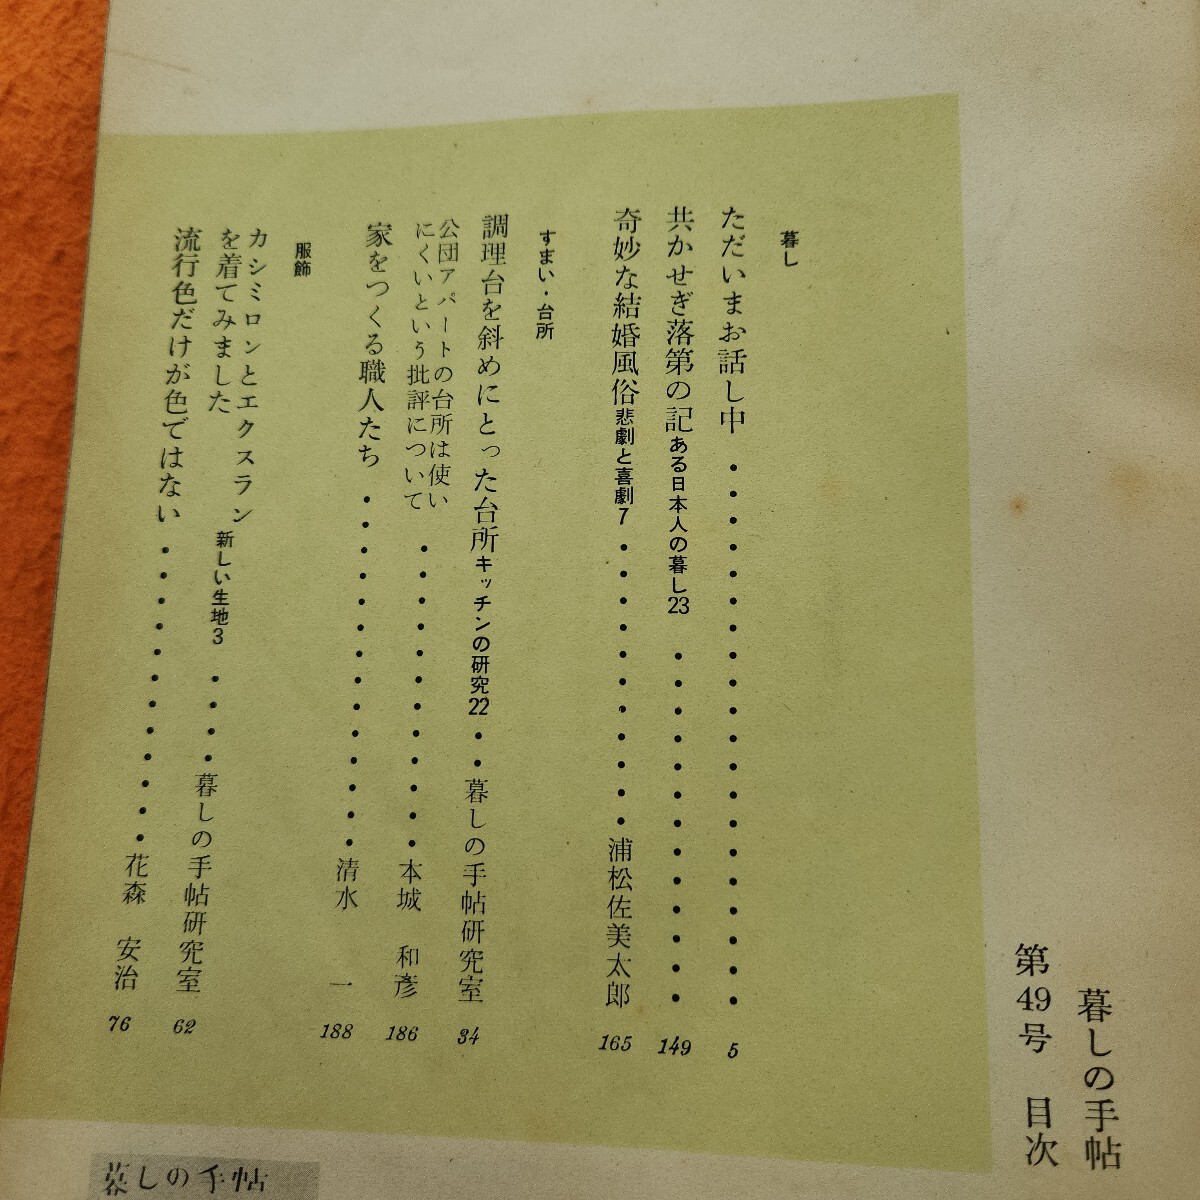 暮しの手帖
第49号 目次
暮し
ただいまお話し中・・・・・・・・・・・・・・・・・・・・5
共かせぎ落第の記 ある日本人の暮し23・・・・・・・・・・・・・149
奇妙な結婚風俗 悲劇と喜劇7・・・・・・・・・・・浦松佐美太郎 165
すまい・台所
調理台を斜めにとった台所 キッチンの研究22・・暮しの手帖研究室 34
公団アパートの台所は使い
にくいという批評について・・・・・・・・・・・・本城 和彦 186
家をつくる職人たち・・・・・・・・・・・・・・清水 一 188
服飾
カシミロンとエクスラン
を着てみました 新しい生地3・・・・暮しの手帖研究室 62
流行色だけが色ではない・・・・・・・・・・・・花森 安治 76
暮しの手帖